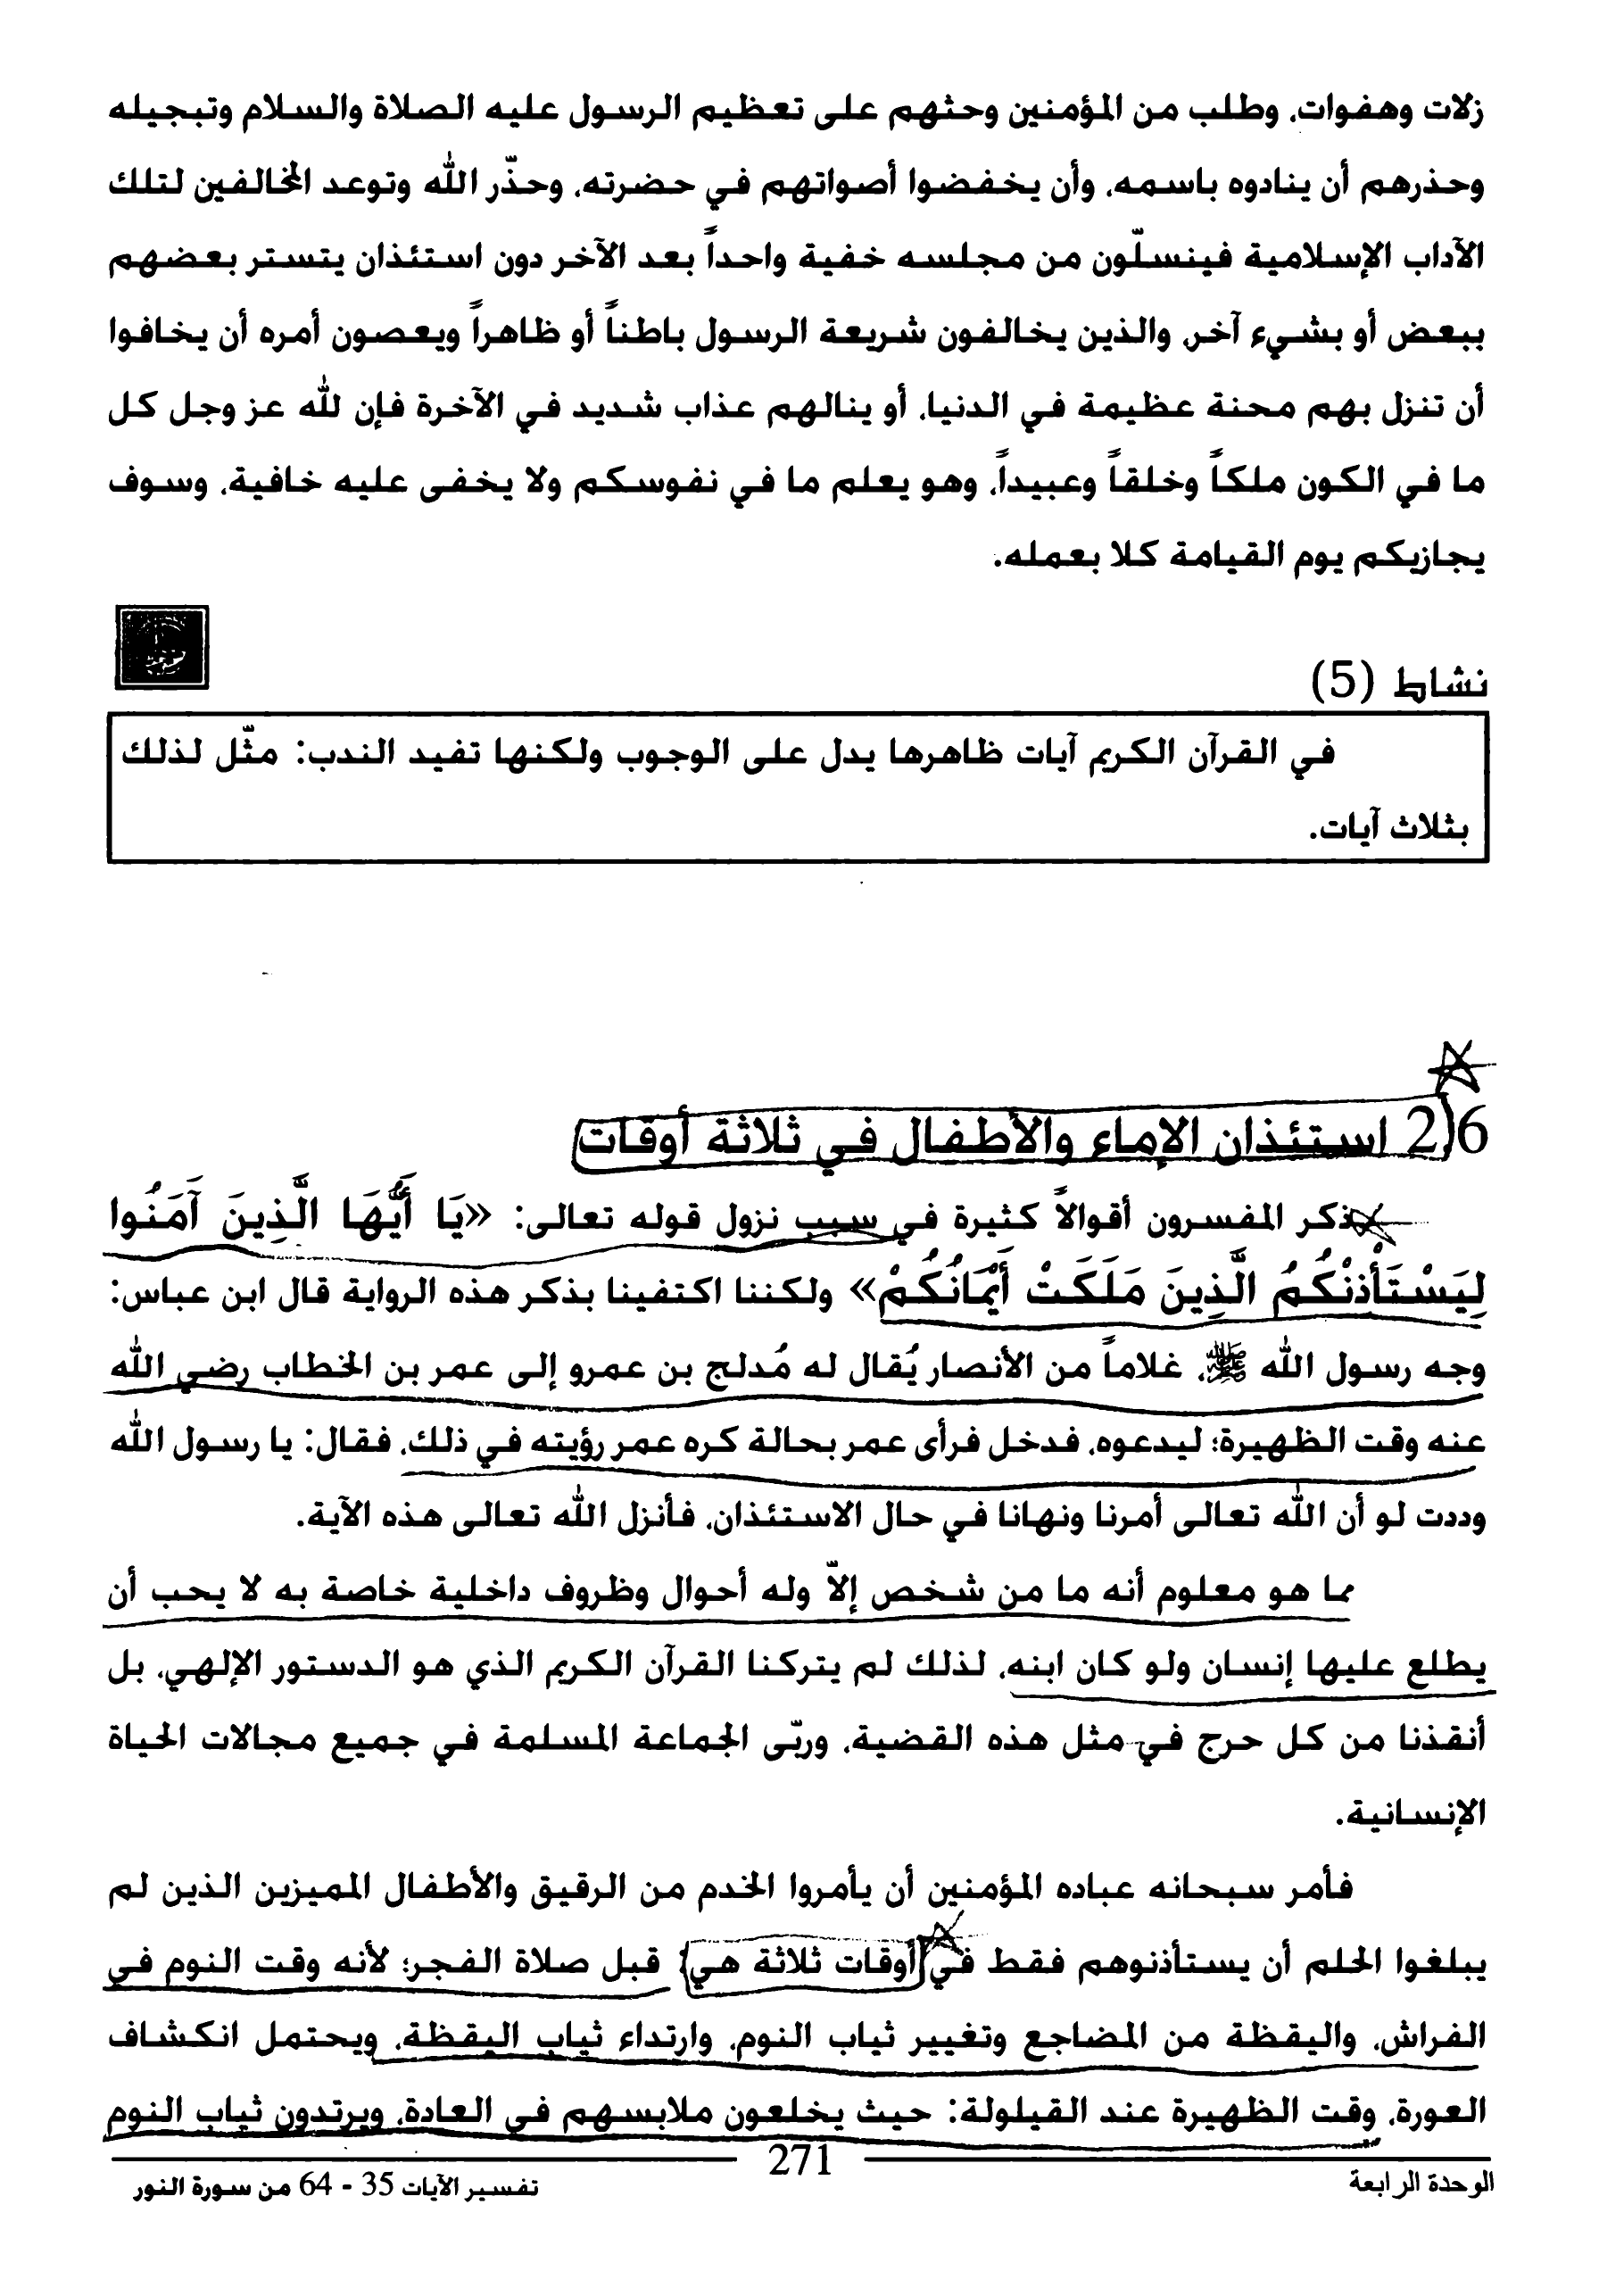 زلات وهفوات، وطلب من المؤمنين وحثهم على تعظيم الرسول عليه الصلاة والسلام وتبجيله
وحذرهم أن ينادوه باسمه، وأن يخفضوا أصواتهم في حضرته، وحذّر الله وتوعد المخالفين لتلك
الآداب الإسلامية فينسلّون من مجلسه خفية واحداً بعد الآخر دون استئذان يتستر بعضهم
ببعض أو بشيء آخر، والذين يخالفون شريعة الرسول باطناً أو ظاهراً ويعصون أمره أن يخافوا
أن تنزل بهم محنة عظيمة في الدنيا، أو ينالهم عذاب شديد في الآخرة فإن لله عز وجل كل
ما في الكون ملكاً وخلقاً وعبيداً، وهو يعلم ما في نفوسكم ولا يخفى عليه خافية، وسوف
يجازيكم يوم القيامة كلا بعمله.
نشاط (5)
في القرآن الكريم آيات ظاهرها يدل على الوجوب ولكنها تفيد الندب: مثّل لذلك
بثلاث آيات.
2,6 استئذان الإماء والأطفال في ثلاثة أوقات
ذكر المفسرون أقوالاً كثيرة في سبب نزول قوله تعالى: «يَا أَيُّهَا الَّذِينَ آمَنُوا
لِيَسْتَأْذِنْكُمُ الَّذِينَ مَلَكَتْ أَيْمَانُكُمْ» ولكننا اكتفينا بذكر هذه الرواية قال ابن عباس:
وجه رسول الله ﷺ، غلاماً من الأنصار يُقال له مُدلج بن عمرو إلى عمر بن الخطاب رضي الله
عنه وقت الظهيرة؛ ليدعوه، فدخل فرأى عمر بحالة كره عمر رؤيته في ذلك، فقال: يا رسول الله
وددت لو أن الله تعالى أمرنا ونهانا في حال الاستئذان، فأنزل الله تعالى هذه الآية.
مما هو معلوم أنه ما من شخص إلاّ وله أحوال وظروف داخلية خاصة به لا يحب أن
يطلع عليها إنسان ولو كان ابنه، لذلك لم يتركنا القرآن الكريم الذي هو الدستور الإلهي، بل
أنقذنا من كل حرج في مثل هذه القضية، وربّى الجماعة المسلمة في جميع مجالات الحياة
الإنسانية.
فأمر سبحانه عباده المؤمنين أن يأمروا الخدم من الرقيق والأطفال المميزين الذين لم
يبلغوا الحلم أن يستأذنوهم فقط في أوقات ثلاثة هي: قبل صلاة الفجر؛ لأنه وقت النوم في
الفراش، واليقظة من المضاجع وتغيير ثياب النوم، وارتداء ثياب اليقظة، ويحتمل انكشاف
العورة، وقت الظهيرة عند القيلولة: حيث يخلعون ملابسهم في العادة، ويرتدون ثياب النوم
271
الوحدة الرابعة
تفسير الآيات 35 - 64 من سورة النور